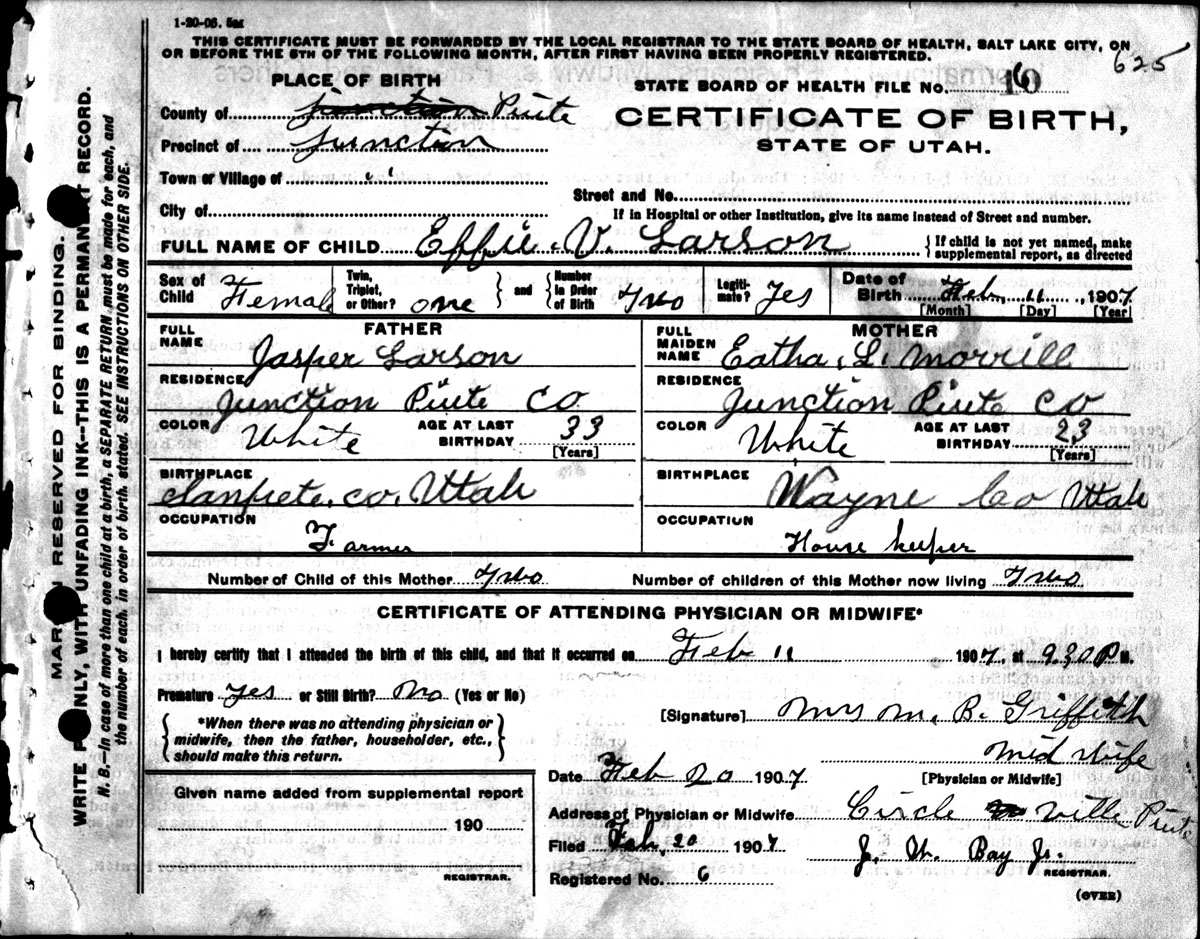 1-20-06. 5M
THIS CERTIFICATE MUST BE FORWARDED BY THE LOCAL REGISTRAR TO THE STATE BOARD OF HEALTH, SALT LAKE CITY, ON
OR BEFORE THE 5TH OF THE FOLLOWING MONTH, AFTER FIRST HAVING BEEN PROPERLY REGISTERED.
625
PLACE OF BIRTH
STATE BOARD OF HEALTH FILE NO. 16
County of Junction Piute
CERTIFICATE OF BIRTH,
Precinct of Junction
STATE OF UTAH.
Town or Village of " "
Street and No.
City of
If in Hospital or other Institution, give its name instead of Street and number.
FULL NAME OF CHILD Effie V. Larson
If child is not yet named, make supplemental report, as directed
Sex of Child Female
Twin, Triplet, or Other? one
and Number in Order of Birth Two
Legitimate? Yes
Date of Birth Feb. 11, 1907
[Month] [Day] [Year]
FATHER
FULL NAME Jasper Larson
RESIDENCE Junction Piute Co
COLOR White
AGE AT LAST BIRTHDAY 33
[Years]
BIRTHPLACE Sanpete, Co, Utah
OCCUPATION Farmer
MOTHER
FULL MAIDEN NAME Eatha L. Morrill
RESIDENCE Junction Piute Co
COLOR White
AGE AT LAST BIRTHDAY 23
[Years]
BIRTHPLACE Wayne Co Utah
OCCUPATION House keeper
Number of Child of this Mother Two
Number of children of this Mother now living Two
CERTIFICATE OF ATTENDING PHYSICIAN OR MIDWIFE*
I hereby certify that I attended the birth of this child, and that it occurred on Feb 11 1907, at 930 P M.
Premature Yes or Still Birth? No (Yes or No)
*When there was no attending physician or
midwife, then the father, householder, etc.,
should make this return.
[Signature] Mrs M. B. Griffith
Mid Wife
[Physician or Midwife]
Date Feb 20 1907
Address of Physician or Midwife Circle ville Piute
Filed Feb, 20 1907
J. W. Bay Jr.
REGISTRAR.
Registered No. 6
(OVER)
Given name added from supplemental report
190
REGISTRAR.
MARGIN RESERVED FOR BINDING.
WRITE PLAINLY, WITH UNFADING INK--THIS IS A PERMANENT RECORD.
N. B.--In case of more than one child at a birth, a SEPARATE RETURN must be made for each, and
the number of each, in order of birth stated. SEE INSTRUCTIONS ON OTHER SIDE.